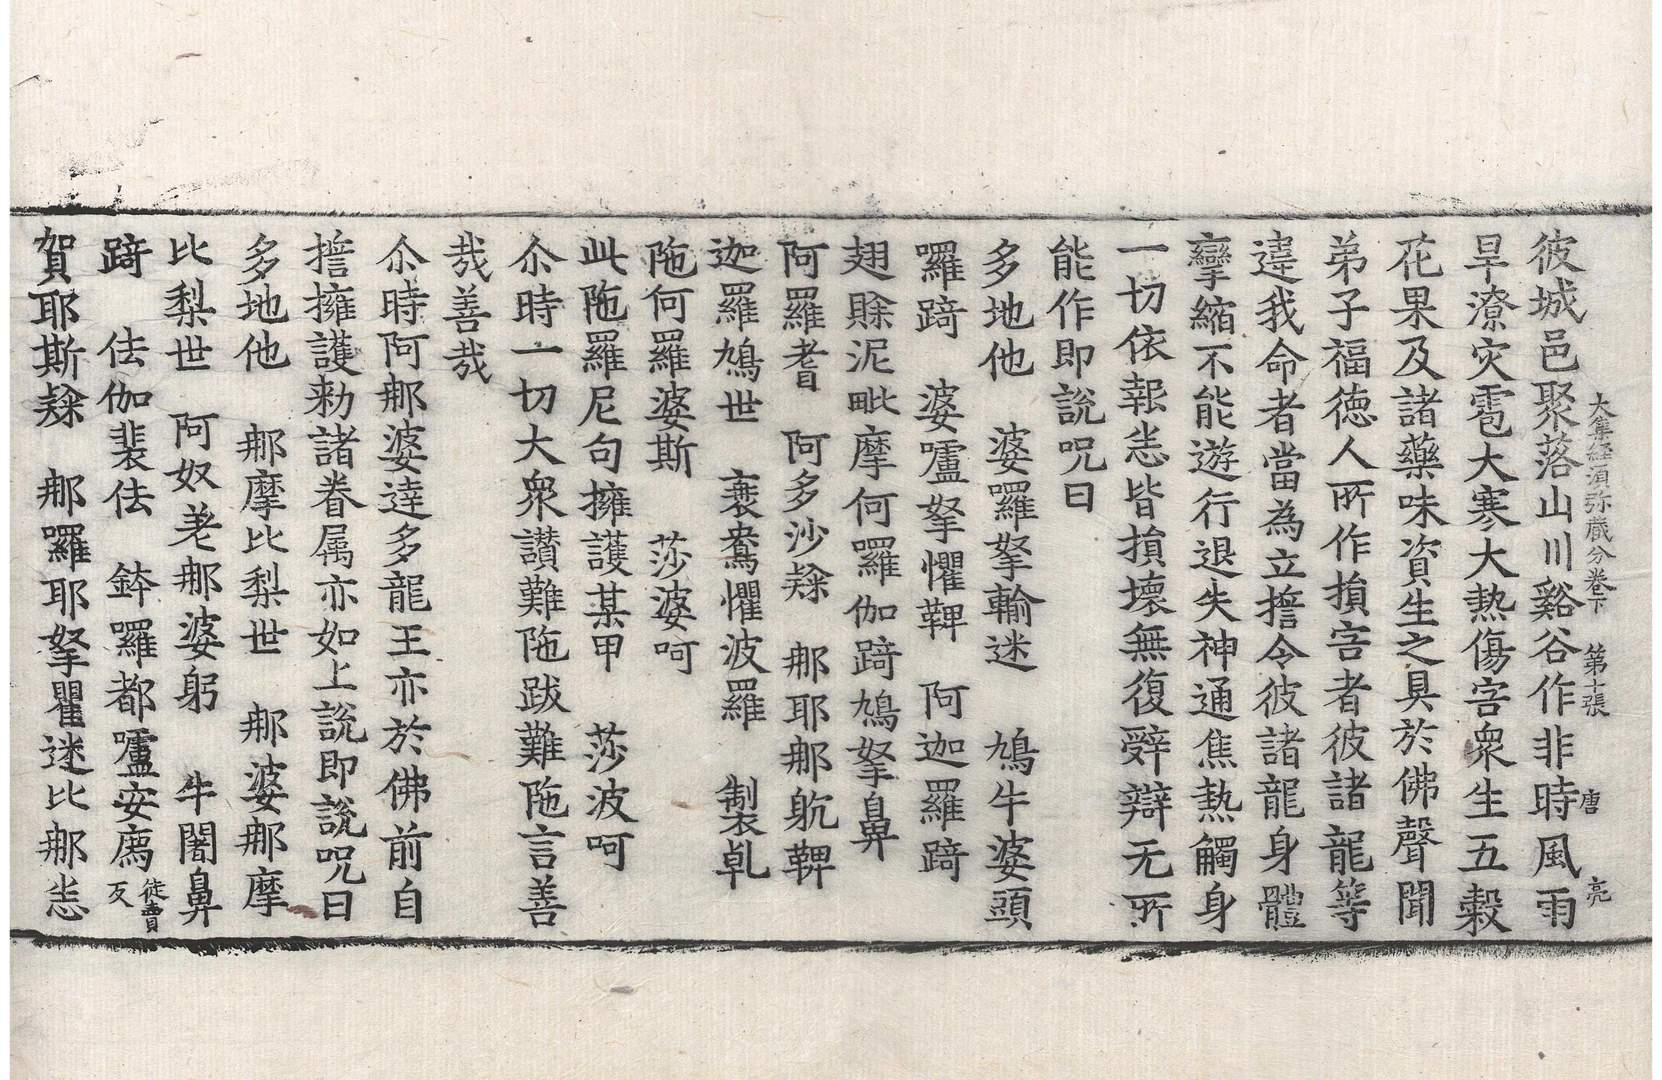 大集経須弥蔵分卷下　第十張　唐　亮
彼城邑聚落山川谿谷作非時風雨
旱潦灾雹大寒大熱傷害衆生五穀
花果及諸藥味資生之具於佛聲聞
弟子福德人所作損害者彼諸龍等
違我命者當為立擔令彼諸龍身體
攣縮不能遊行退失神通焦熱觸身
一切依報悉皆損壞無復辤辯无所
能作即説呪曰
多地他　婆羅拏輸迷　鳩牛婆頭
囉踦　婆嚧拏懼鞞　阿迦羅踦
翅賖泥毗摩何囉伽踦鳩拏鼻
阿羅耆　阿多沙㷇　那耶那躭鞞
迦羅鳩世　裹鴦懼波羅　製乹
陁何羅婆斯　莎婆呵
此陁羅尼句擁護某甲　莎波呵
尒時一切大衆讃難陁跋難陁言善
哉善哉
尒時阿那婆達多龍王亦於佛前自
擔擁護勑諸眷属亦如上說即說呪曰
多地他　那摩比梨世　那婆那摩
比梨世　阿奴荖那婆躬　牛闍鼻
踦　佉伽裴佉　鉢囉都嚧安廗徒賣反
賀耶斯㷇　那囉耶拏瞿迷比那悉